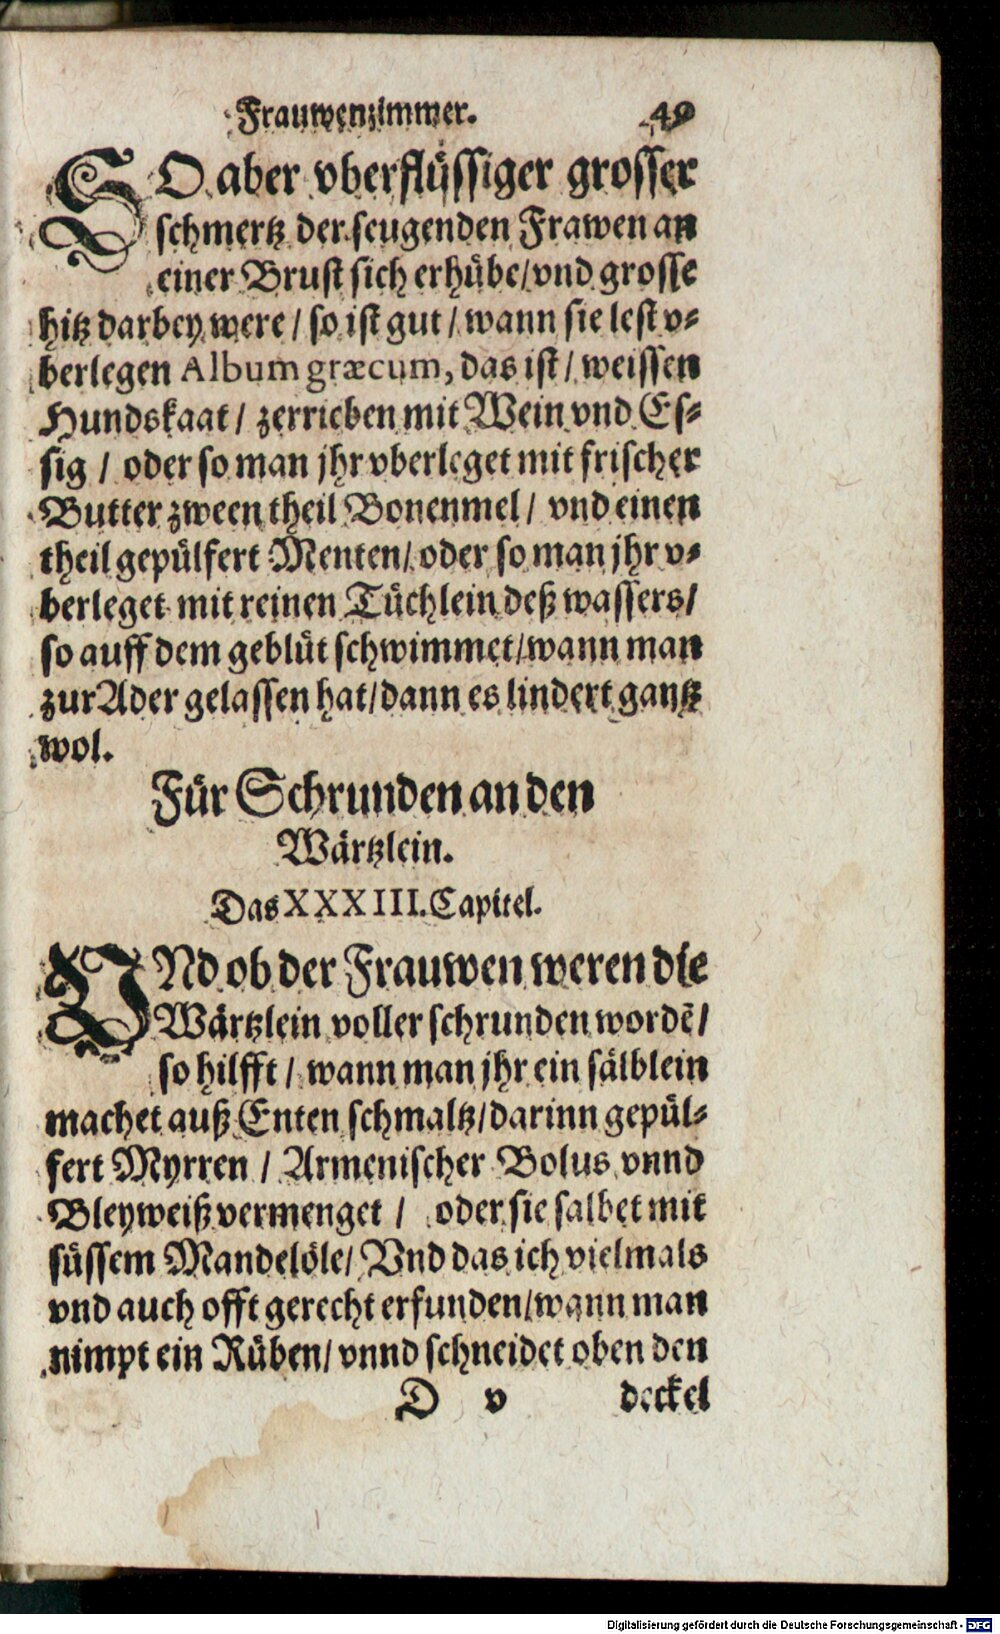 Frauwenzimmer. 49
SO aber vberflüssiger grosser
schmertz der seugenden Frawen an
einer Brust sich erhübe/vnd grosse
hitz darbey were/ so ist gut/ wann sie lest v⸗
berlegen Album græcum, das ist/ weissen
Hundskaat/ zerrieben mit Wein vnd Es⸗
sig/ oder so man jhr vberleget mit frischer
Butter zween theil Bonenmel/ vnd einen
theil gepülfert Menten/ oder so man jhr v⸗
berleget mit reinen Tüchlein deß wassers/
so auff dem geblüt schwimmet/wann man
zur Ader gelassen hat/dann es lindert gantz
wol.
Für Schrunden an den
Wärtzlein.
Das XXXIII. Capitel.
VNd ob der Frauwen weren die
Wärtzlein voller schrunden wordẽ/
so hilfft/ wann man jhr ein sälblein
machet auß Enten schmaltz/darinn gepül⸗
fert Myrren/ Armenischer Bolus vnnd
Bleyweiß vermenget/ oder sie salbet mit
süssem Mandelöle/ Vnd das ich vielmals
vnd auch offt gerecht erfunden/wann man
nimpt ein Rüben/ vnnd schneidet oben den
D v deckel
Digitalisierung gefördert durch die Deutsche Forschungsgemeinschaft - DFG